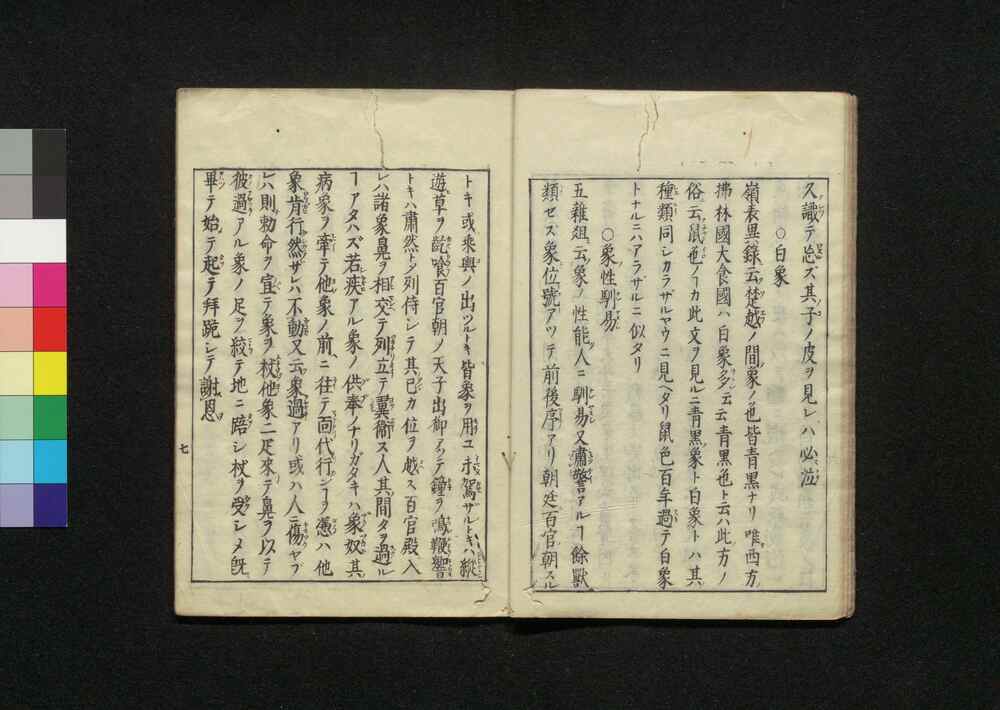 久識テ忘ズ其子ノ皮ヲ見レハ必泣
○白象
嶺表異錄云楚越ノ間象ノ也皆青黒ナリ唯西方
拂林國大食國ハ白象多シ云云青黒也ト云ハ此方ノ
俗云鼠色ノ一カ此文ヲ見ルニ青黒象ト白象トハ其
種類同シカラザルヤウニ見ヘタリ鼠色百年過テ白象
トナルニハアラザルニ似タリ
○象性馴易
五雜俎云象ノ性能人ニ馴易又肅警アルヿ餘獸
類セズ象位號アツテ前後序アリ朝廷百官朝スル
トキ或乘輿ノ出ツルトキ皆象ヲ用ユ未駕ザルトキハ縱
遊草ヲ齕喰百官朝ノ天子出御アツテ鐘ヲ鳴鞭響
トキハ肅然トシ列侍シテ其已カ位ヲ越ス百官殿入
レハ諸象鼻ヲ相交テ列立テ翼衞ス人其間タヲ過ル
ヿアタハズ若疾アル象ノ供奉ノナリガタキハ象奴其
病象ヲ牽テ他象ノ前ニ往テ面代行ンヿヲ慿ハ他
象肯行然ザレハ不動又云象過アリ或ハ人ヲ傷ヤブ
レハ則勅命ヲ宣テ象ヲ杖他象二疋來テ鼻ヲ以テ
彼過アル象ノ足ヲ絞テ地ニ踣シ杖ヲ受シメ既
畢テ始テ起テ拜跪シテ謝恩
七